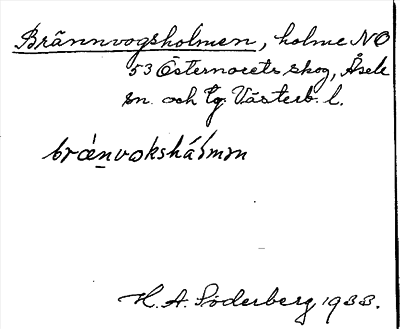 Brännvogsholmen, holme NO
53 Östernorets skog, Åsele
sn. och tg. Västerb. l.
bránvokshálmɱn
H. A. Söderberg 1933.